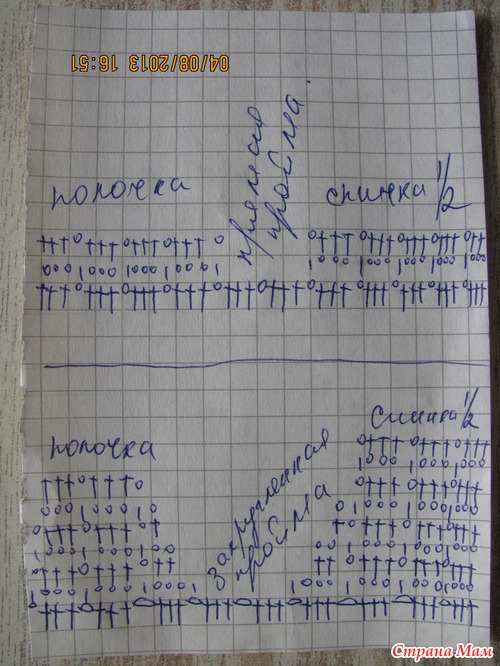 04/08/2013 16:51
полочка
прямая
пройма.
спинка 1/2
полочка
закругленная
пройма
спинка 1/2
Страна Мам